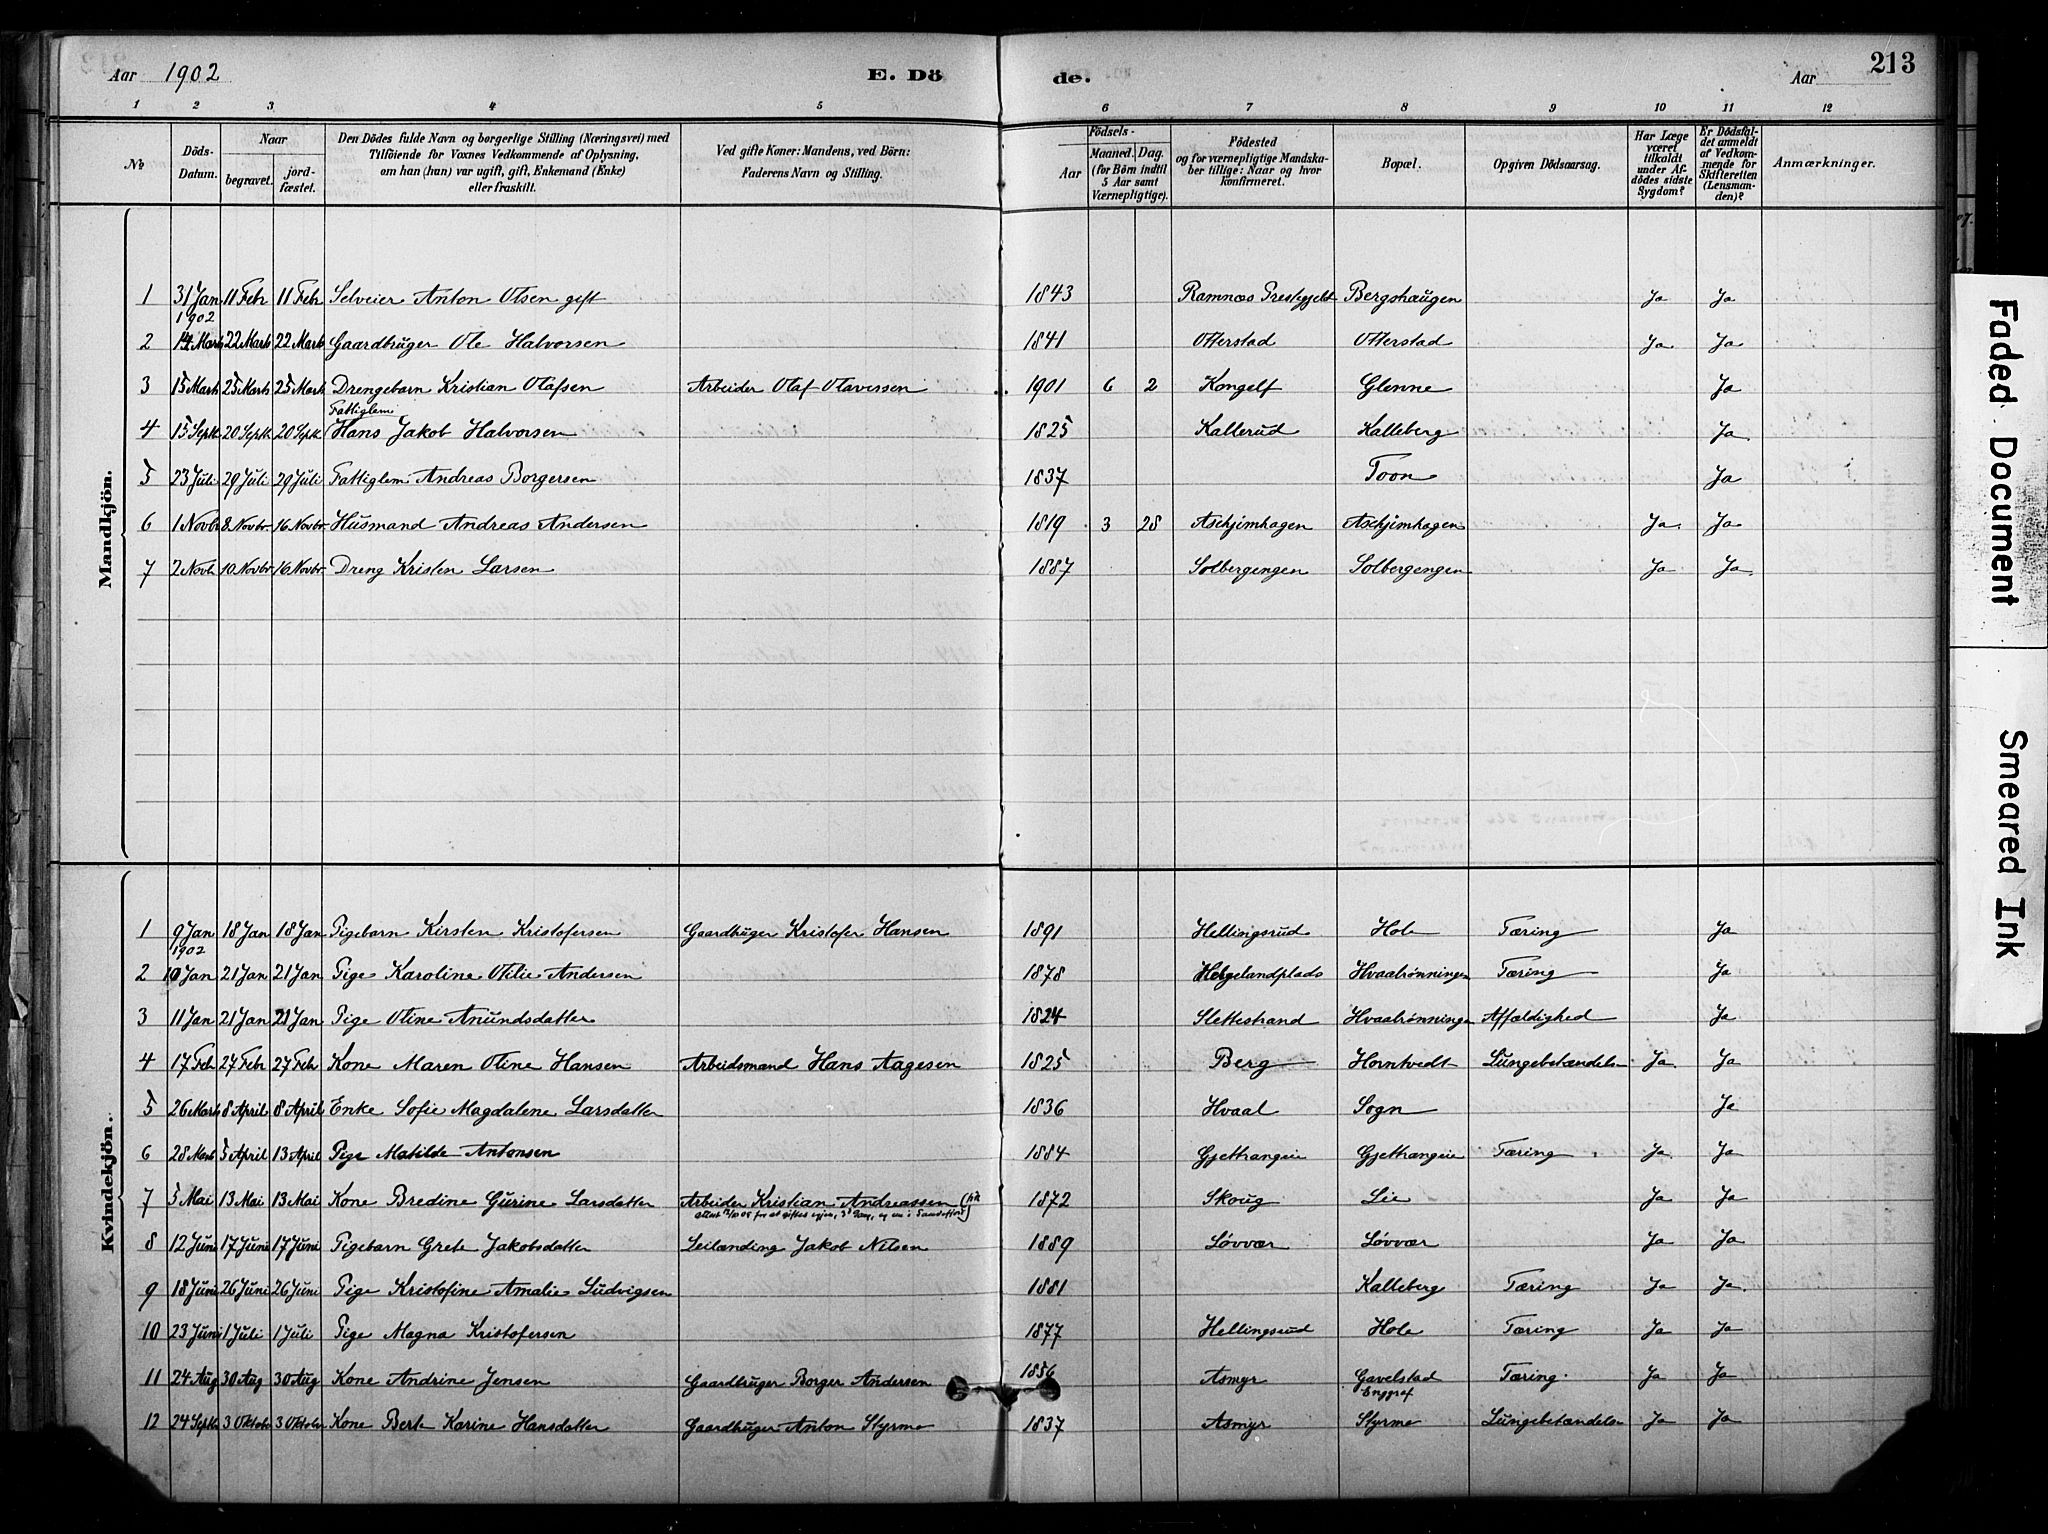 Aar 1902 E. Dö de. Aar 213
1 2 3 4 5 6 7 8 9 10 11 12
№
Döds-Datum.
Naar
begravet.
jord-fæstet.
Den Dödes fulde Navn og borgerlige Stilling (Næringsvei) med
Tilföiende for Voxnes Vedkommende af Oplysning,
om han (hun) var ugift, gift, Enkemand (Enke)
eller fraskilt.
Ved gifte Koner: Mandens, ved Börn:
Faderens Navn og Stilling.
Födsels-
Aar
Maaned. Dag.
(for Börn indtil
5 Aar samt
Værnepligtige).
Födested
og for værnepligtige Mandska-
ber tillige: Naar og hvor
konfirmeret.
Bopæl.
Opgiven Dödsaarsag.
Har Læge
været
tilkaldt
under Af-
dödes sidste
Sygdom?
Er Dödsfal-
det anmeldt
af Vedkom-
mende for
Skifteretten
(Lensman-
den)?
Anmærkninger.
Mandkjön.
1 31 Jan 1902 11 Febr 11 Febr Selveier Anton Olsen gift 1843 Ramnæs Prestegjeld Bergshaugen Ja Ja
2 14 Marts 22 Marts 22 Marts Gaardbruger Ole Halvorsen 1841 Otterstad Otterstad Ja Ja
3 15 Marts 25 Marts 25 Marts Drengebarn Kristian Olafsen Arbeider Olaf Olavessen 1901 6 2 Kongelf Glenne Ja
4 15 Septb. 20 Septb. 20 Septb. Fattiglem Hans Jakob Halvorsen 1825 Kallerud Kalleberg Ja
5 23 Juli 29 Juli 29 Juli Fattiglem Andreas Borgersen 1837 Toon Ja
6 1 Novbr 8 Novbr. 16 Novbr. Husmand Andreas Andersen 1819 3 28 Aschjimhagen Aschjimhagen Ja Ja
7 2 Novb. 10 Novbr. 16 Novbr. Dreng Kristen Larsen 1887 Solbergengen Solbergengen Ja Ja
Kvindekjön.
1 9 Jan 1902 18 Jan 18 Jan Pigebarn Kirsten Kristofersen Gaardbruger Kristofer Hansen 1891 Hellingsrud Hole Tæring Ja
2 10 Jan 21 Jan 21 Jan Pige Karoline Otilie Andersen 1878 Helgelandplads Hvaalrønningen Tæring Ja
3 11 Jan 21 Jan 21 Jan Pige Oline Anundsdatter 1824 Slettestrand Hvaalrønninge Affældighed Ja
4 17 Feb 27 Febr 27 Febr Kone Maren Oline Hansen Arbeidsmand Hans Aagesen 1825 Berg Horntvedt Lungebetændelse Ja Ja
5 26 Marts 8 April 8 April Enke Sofie Magdalene Larsdatter 1836 Hvaal Sogn Ja
6 28 Marts 5 April 13 April Pige Matilde Antonsen 1884 Gjethangeie Gjethangeie Tæring Ja Ja
7 5 Mai 13 Mai 13 Mai Kone Bredine Gurine Larsdatter Arbeider Kristian Andreassen 1872 Skoug Lie Ja Ja
for at giftes igjen, 3d Gang,
8 12 Juni 17 Juni 17 Juni Pigebarn Grete Jakobsdatter Leilænding Jakob Nilsen 1889 Løvvær Løvvær Ja Ja
9 18 Juni 26 Juni 26 Juni Pige Kristofine Amalie Ludvigsen 1881 Kalleberg Tæring Ja Ja
10 23 Juni 1 Juli 1 Juli Pige Magna Kristofersen 1877 Hellingsrud Hole Tæring Ja Ja
11 24 Aug 30 Aug 30 Aug Kone Andrine Jensen Gaardbruger Borger Andersen 1856 Asmyr Gavelstad Enggraf Tæring Ja Ja
12 24 Septb 3 Oktober 3 Oktober Kone Berte Karine Hansdatter Gaardbruger Anton Styrmo 1837 Asmyr Styrmo Lungebetændelse Ja Ja
Faded Document
Smeared Ink